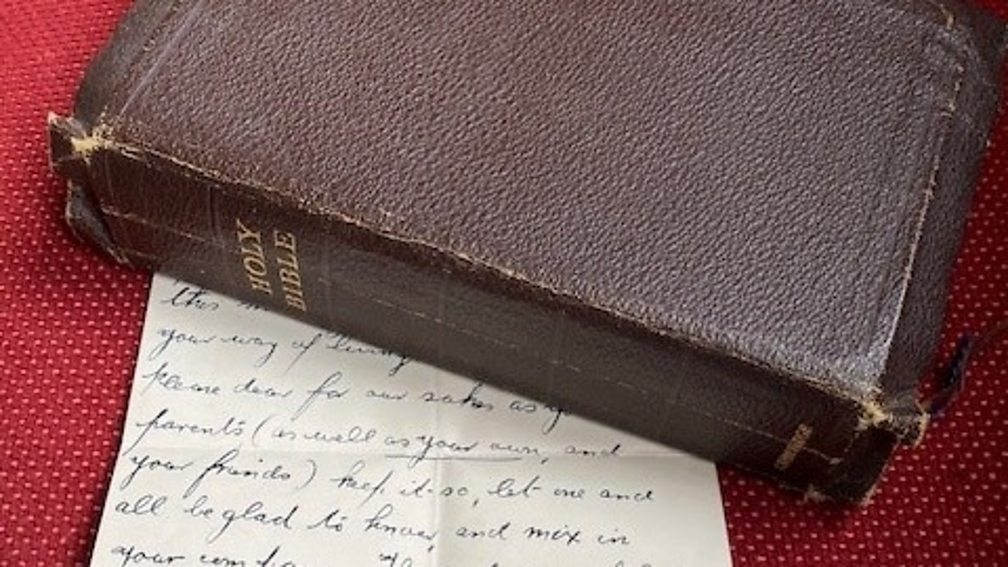 HOLY
BIBLE
this
your way of living
Please dear for our sakes as
parents (as well as your own, and
your friends) keep it so, let one and
all be glad to know, and mix in
your